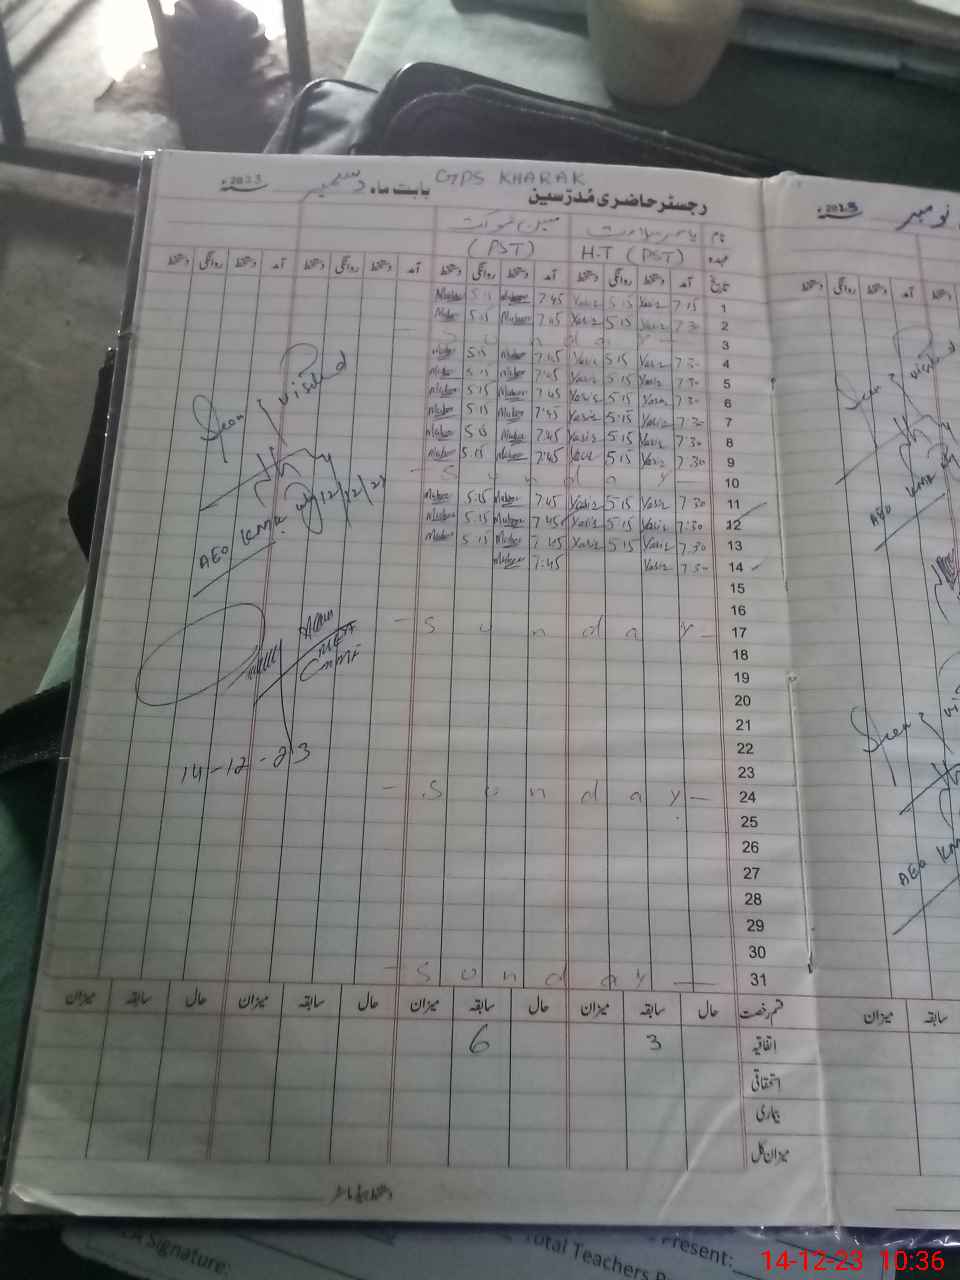 GPS KHARAK
رجسٹر حاضری مُدرّسین بابت ماہ دسمبر 2023ء
نام یاسر سلامت مبین شوکت
عہدہ H.T (PST) (PST)
تاریخ آمد دستخط روانگی دستخط آمد دستخط روانگی دستخط آمد دستخط روانگی دستخط آمد دستخط روانگی دستخط
1 7:15 Yasir 5:15 Yasir 7:45 5:15
2 7:30 Yasir 5:15 Yasir 7:45 5:15
3 Sunday
4 7:30 Yasir 5:15 Yasir 7:45 5:15
5 7:30 Yasir 5:15 Yasir 7:45 5:15
6 7:30 Yasir 5:15 Yasir 7:45 5:15
7 7:30 Yasir 5:15 Yasir 7:45 5:15
8 7:30 Yasir 5:15 Yasir 7:45 5:15
9 7:30 Yasir 5:15 Yasir 7:45 5:15
10 - Sunday -
11 7:30 Yasir 5:15 Yasir 7:45 5:15
12 7:30 Yasir 5:15 Yasir 7:45 5:15
13 7:30 Yasir 5:15 Yasir 7:45 5:15
14 7:30 Yasir 7:45
15
16
17 - Sunday -
18
19
20
21
22
23
24 - Sunday -
25
26
27
28
29
30
31 - Sunday -
Seen & visited
AEO
12/12/23
14-12-23
قسم رخصت حال سابقہ میزان حال سابقہ میزان حال سابقہ میزان حال سابقہ میزان
اتفاقیہ 3 6
استحقاقی
بیماری
میزان کل
دستخط ہیڈ ماسٹر
نومبر 2023ء
آمد دستخط روانگی دستخط
Seen & visited
AEO
Seen & visi
AEO
سابقہ میزان
A Signature:
Total Teachers
Present:
14-12-23 10:36